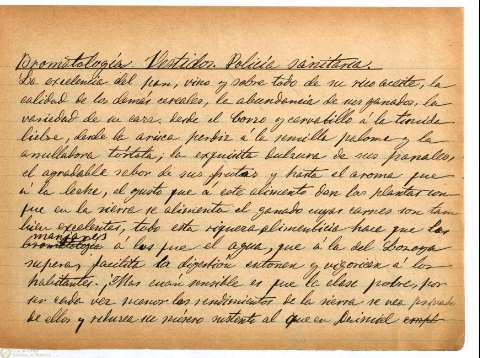 Bromatología. Vestidos. Policía sanitaria.
La excelencia del pan, vino y sobre todo de su rico aceite, la
calidad de los demás cereales, la abundancia de sus ganados, la
variedad de su caza, desde el corzo y cervatillo á la tímida
liebre, desde la arisca perdiz á la sencilla paloma y la
arrulladora tórtola; la exquisita dulzura de sus panales,
el agradable sabor de sus frutas y hasta el aroma que
á la leche, el gusto que á este alimento dan las plantas con
que en la sierra se alimenta el ganado cuyas carnes son tam
bien excelentes, todo esta riqueza alimenticia hace que los
manjares
á los que el agua, que á la del Lozoya
supera, facilita la digestión entonen y vigoricen á los
habitantes. ¡Mas cuán sensible es que la clase pobre, por
ser cada vez menor los rendimientos de la sierra se vea privada
de ellos y reduzca su mísero sustento al que en